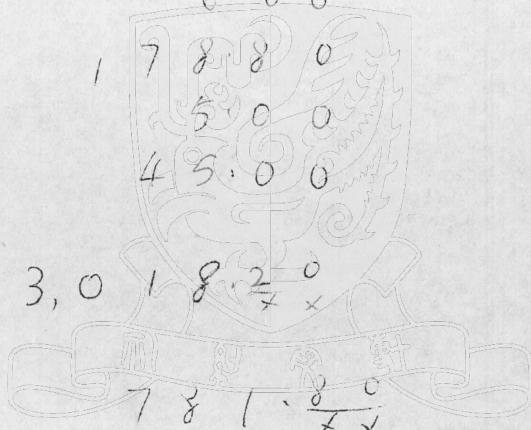 0 0 0
1 7 8 8 0
5.0 0
4 5.0 0
3, 0 1 8.2 0
7 8 1.8 0